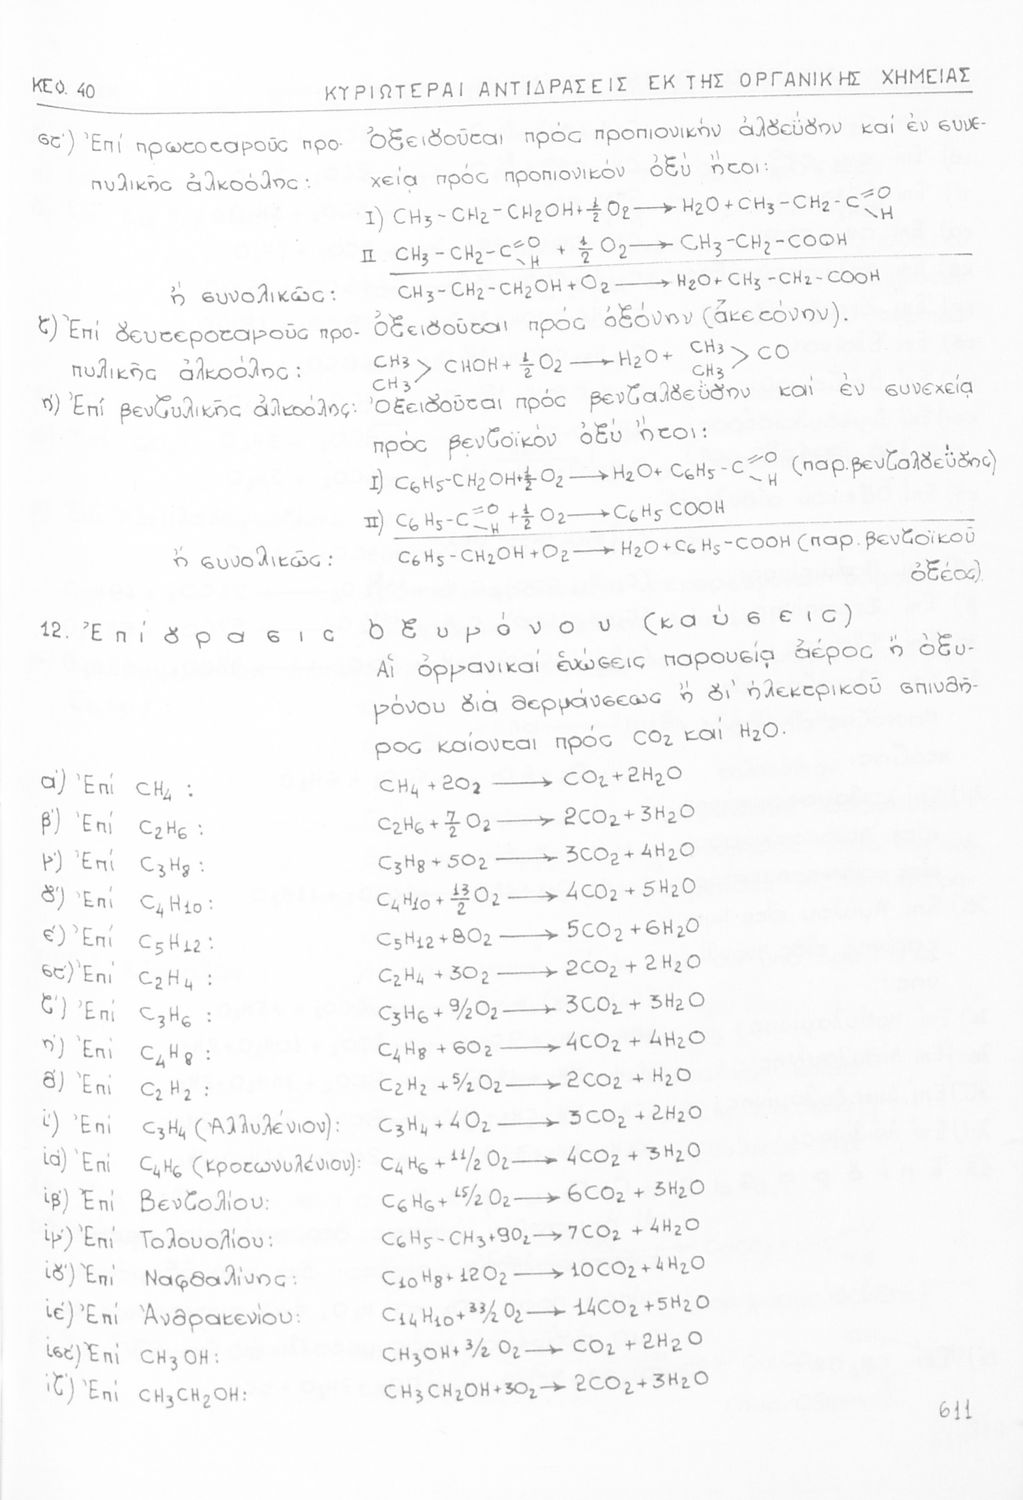 ΚΕΦ. 40 ΚΥΡΙΩΤΕΡΑΙ ΑΝΤΙΔΡΑΣΕΙΣ ΕΚ ΤΗΣ ΟΡΓΑΝΙΚΗΣ ΧΗΜΕΙΑΣ
στ') Ἐπί πρωτοταγοῦς προ- Ὀξειδοῦται πρός προπιονικήν ἀλδεύδην καί ἐν συνε-
πυλικῆς ἀλκοόλης: χεία πρός προπιονικόν ὀξύ ἤτοι:
I) CH3-CH2-CH2OH+½O2→H2O+CH3-CH2-C=O-H
II CH3-CH2-C=O-H + ½O2→CH3-CH2-COOH
ἤ συνολικῶς: CH3-CH2-CH2OH+O2→H2O+CH3-CH2-COOH
ζ) Ἐπί δευτεροταγοῦς προ- Ὀξειδοῦται πρός ὀξόνην (ἀκετόνην).
πυλικῆς ἀλκοόλης: CH3 CH3>CHOH+½O2→H2O+ CH3 CH3>CO
η) Ἐπί βενζυλικῆς ἀλκοόλης: Ὀξειδοῦται πρός βενζαλδεΰδην καί ἐν συνεχεία
πρός βενζοϊκόν ὀξύ ἤτοι:
I) C6H5-CH2OH+½O2→H2O+C6H5-C=O-H (παρ.βενζαλδεΰδης)
II) C6H5-C=O-H+½O2→C6H5COOH
ἤ συνολικῶς: C6H5-CH2OH+O2→H2O+C6H5-COOH (παρ.βενζοϊκοῦ
ὀξέος).
12. Ἐπίδρασις ὀξυγόνου (καύσεις)
Αἱ ὀργανικαί ἑνώσεις παρουσίᾳ ἀέρος ἤ ὀξυ-
γόνου διά θερμάνσεως ἤ δι' ἠλεκτρικοῦ σπινθῆ-
ρος καίονται πρός CO2 καί H2O.
α') Ἐπί CH4: CH4+2O2→CO2+2H2O
β') Ἐπί C2H6: C2H6+7/2O2→2CO2+3H2O
γ') Ἐπί C3H8: C3H8+5O2→3CO2+4H2O
δ') Ἐπί C4H10: C4H10+13/2O2→4CO2+5H2O
ε') Ἐπί C5H12: C5H12+8O2→5CO2+6H2O
στ') Ἐπί C2H4: C2H4+3O2→2CO2+2H2O
ζ') Ἐπί C3H6: C3H6+9/2O2→3CO2+3H2O
η') Ἐπί C4H8: C4H8+6O2→4CO2+4H2O
θ) Ἐπί C2H2: C2H2+5/2O2→2CO2+H2O
ι') Ἐπί C3H4 (Ἀλλυλένιον): C3H4+4O2→3CO2+2H2O
ια) Ἐπί C4H6 (κροτωνυλένιον): C4H6+11/2O2→4CO2+3H2O
ιβ) Ἐπί Βενζολίου: C6H6+15/2O2→6CO2+3H2O
ιγ') Ἐπί Τολουολίου: C6H5-CH3+9O2→7CO2+4H2O
ιδ') Ἐπί Ναφθαλίνης: C10H8+12O2→10CO2+4H2O
ιέ) Ἐπί Ἀνθρακενίου: C14H10+33/2O2→14CO2+5H2O
ιστ') Ἐπί CH3OH: CH3OH+3/2O2→CO2+2H2O
ιζ') Ἐπί CH3CH2OH: CH3CH2OH+3O2→2CO2+3H2O
611